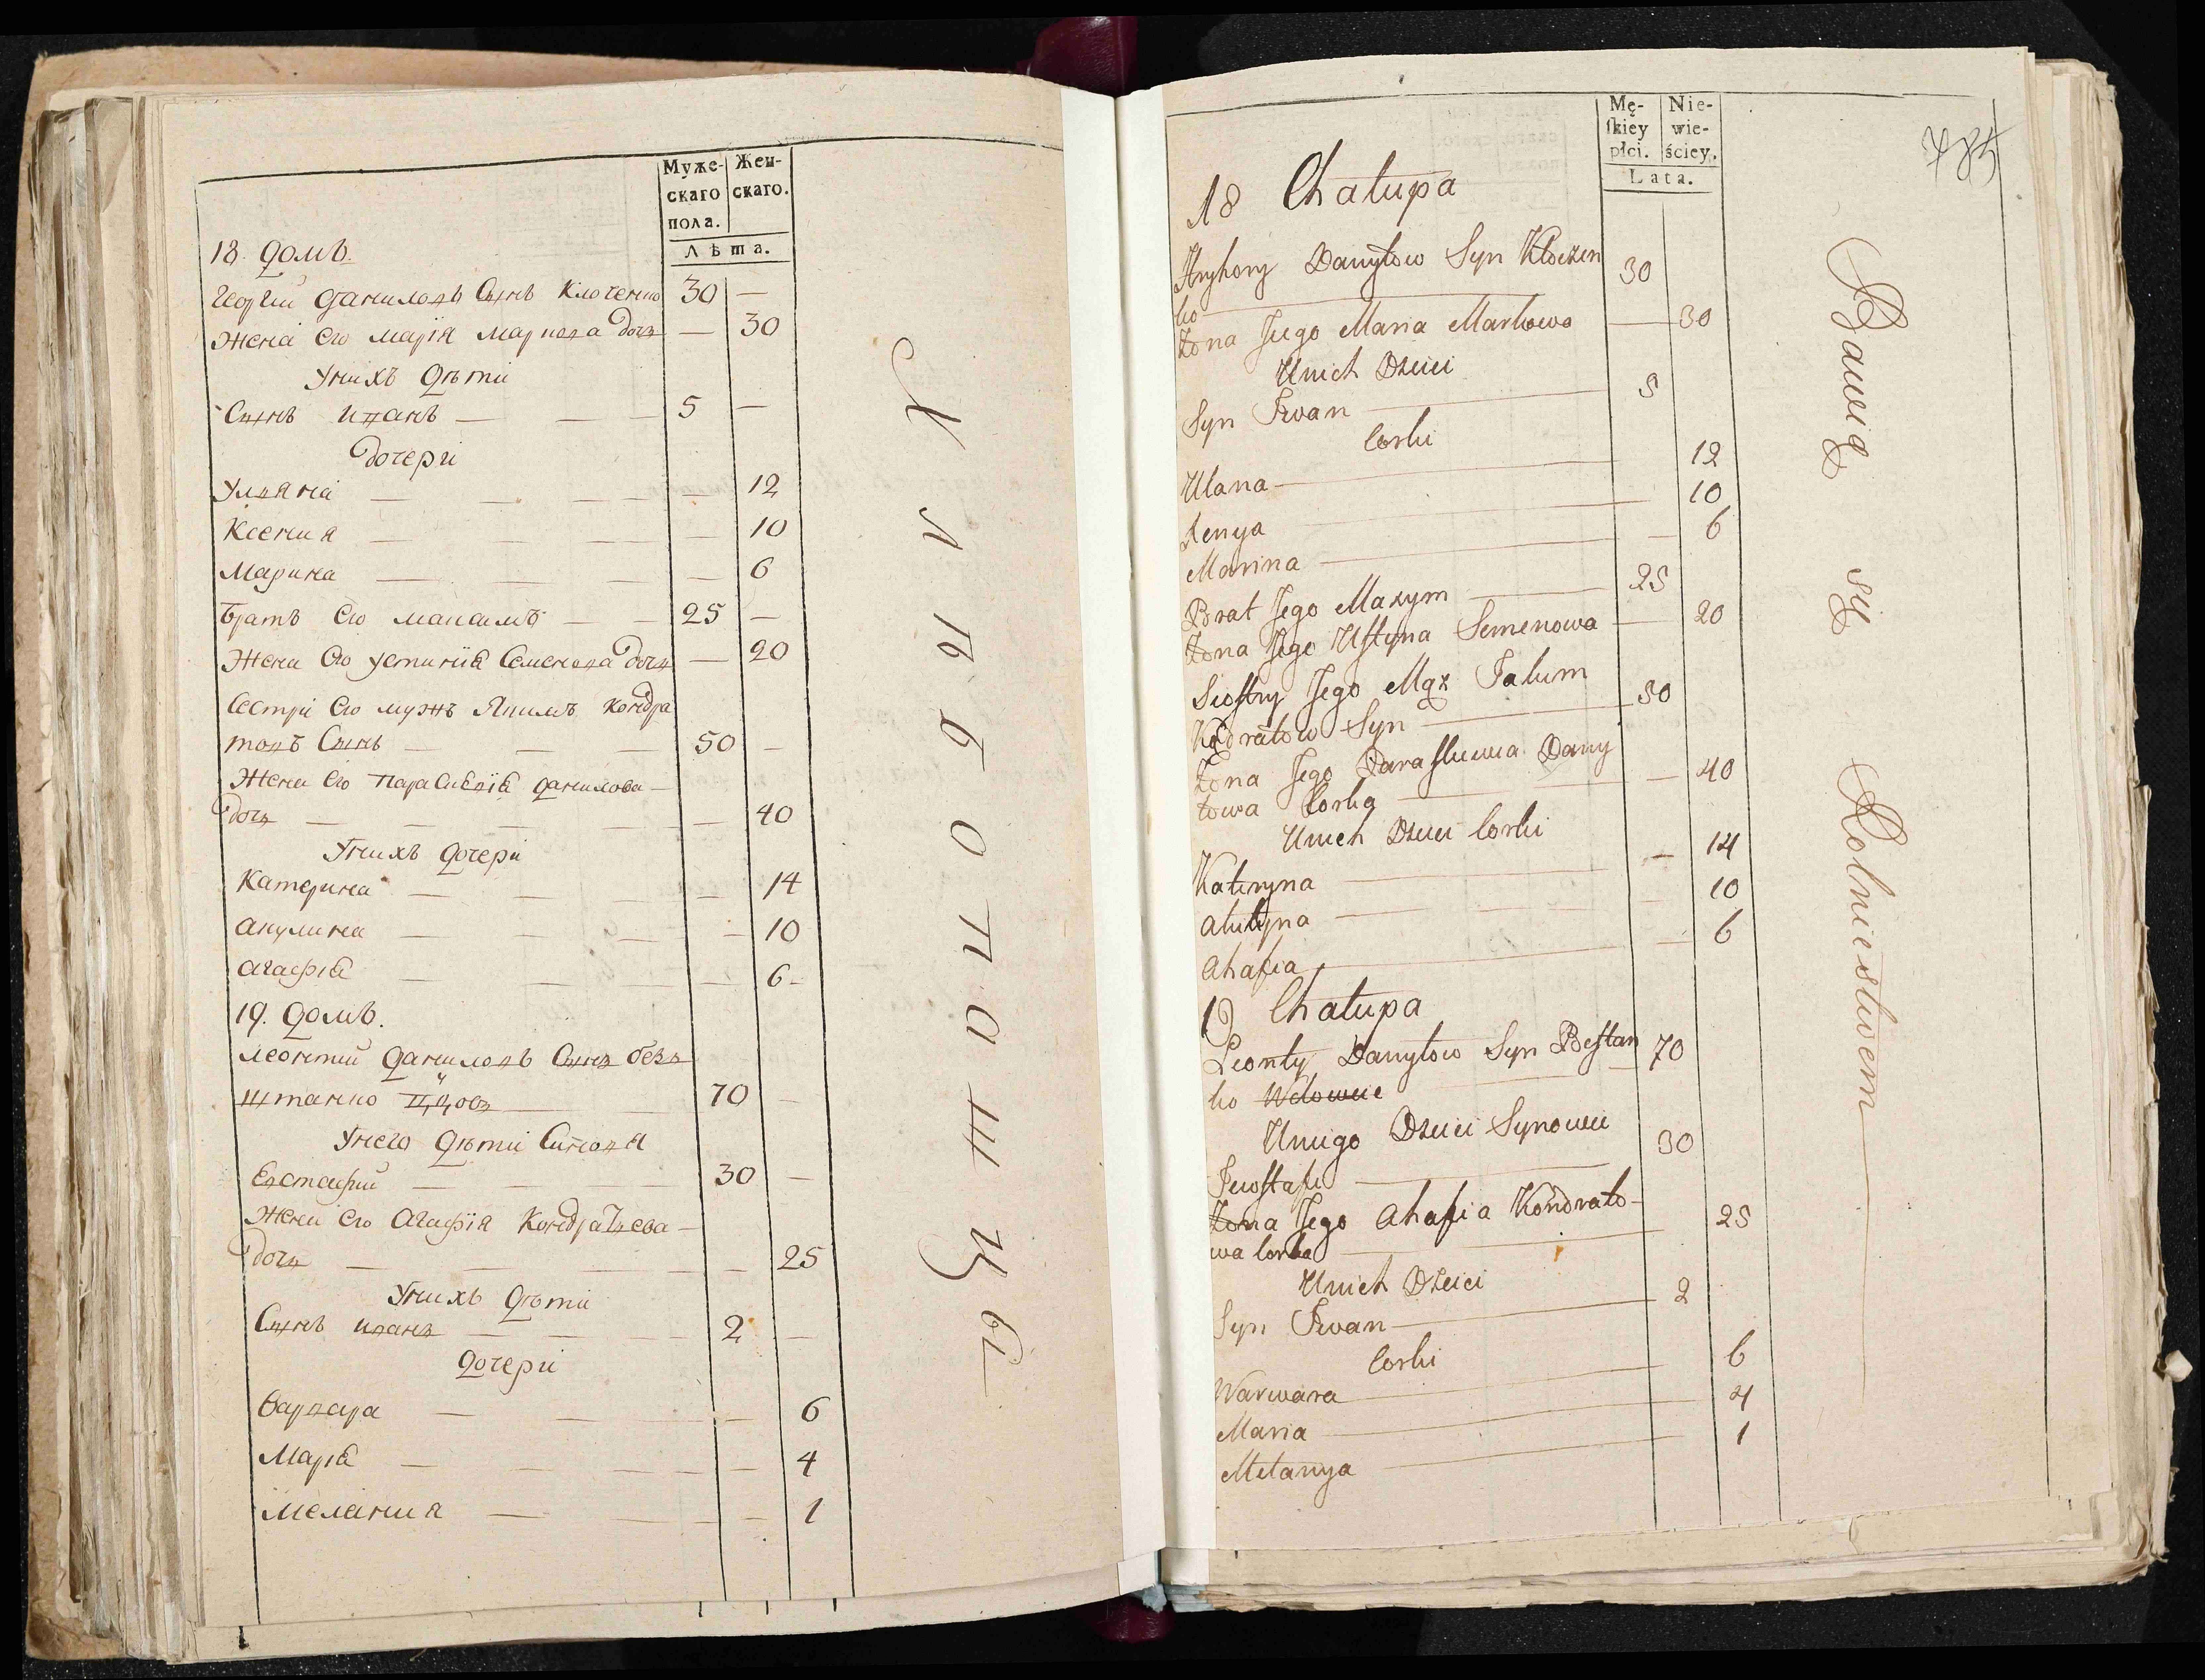 Муже-
скаго
пола.
Жен-
скаго.
Лѣта.
18. домъ.
Георгий даниловъ Сынъ Клоченко 30 —
Жена его мария маркова дочь — 30
У них дѣти
Сынъ иванъ — — — 5 —
дочери
Уляна — — — — 12
Ксения — — — — 10
Марина — — — — 6
братъ его максимъ — — 25 —
Жена его устиния Семенова дочь — 20
Сестри его мужъ Якимъ Кондра
товъ Сынъ — — — 50 —
Жена его параскевия данилова —
дочь — — — — — 40
У нихъ дочери
Катерина — — — — 14
акулина — — — — 10
агафия — — — — 6 -
19. домъ.
леонтий даниловъ Сынъ без
штанко вдовъ 70 —
У него дѣти Синовя
Евстафий — — — 30 —
Жена его агафия Кондратьева —
дочь — — — — — 25
У нихъ дѣти
Сынъ иванъ — — — 2 —
дочери
варвара — — — — 6
Мария — — — — — 4
Мелания — — — — 1
Хлѣбопашцы
Mę-
ſkiey
płci.
Nie-
wie-
ściey.
Lata.
785
18 Chałupa
Hryhory Danyłow Syn Kłoczen 30
ko
Żona Jego Maria Markowa — 30
U nich Dzieci
Syn Iwan — 5
Corki
Ulana — 12
Xenya 10
Marina — 6
Brat Jego Maxym — 25
Żona Jego Uſtyna Semenowa — 20
Sioſtry Jego Mąż Jakim
Kądratow Syn — 50
Żona Jego Paraſkiewia Dany
łowa Corka — — 40
U nich Dzieci Corki
Kateryna — — 14
Akulyna — 10
Ahafia — — 6
19 Chałupa
Leonty Danyłow Syn Beſtan 70
ko Wdowiec
U niego Dzieci Synowie
Jewſtafi — 30
Żona Jego Ahafia Kondrato-
wa Corka — 25
U nich Dzieci
Syn Iwan — 2
Corki
Warwara — 6
Maria — 4
Mełanya — 1
Bawią się Rolnictwem